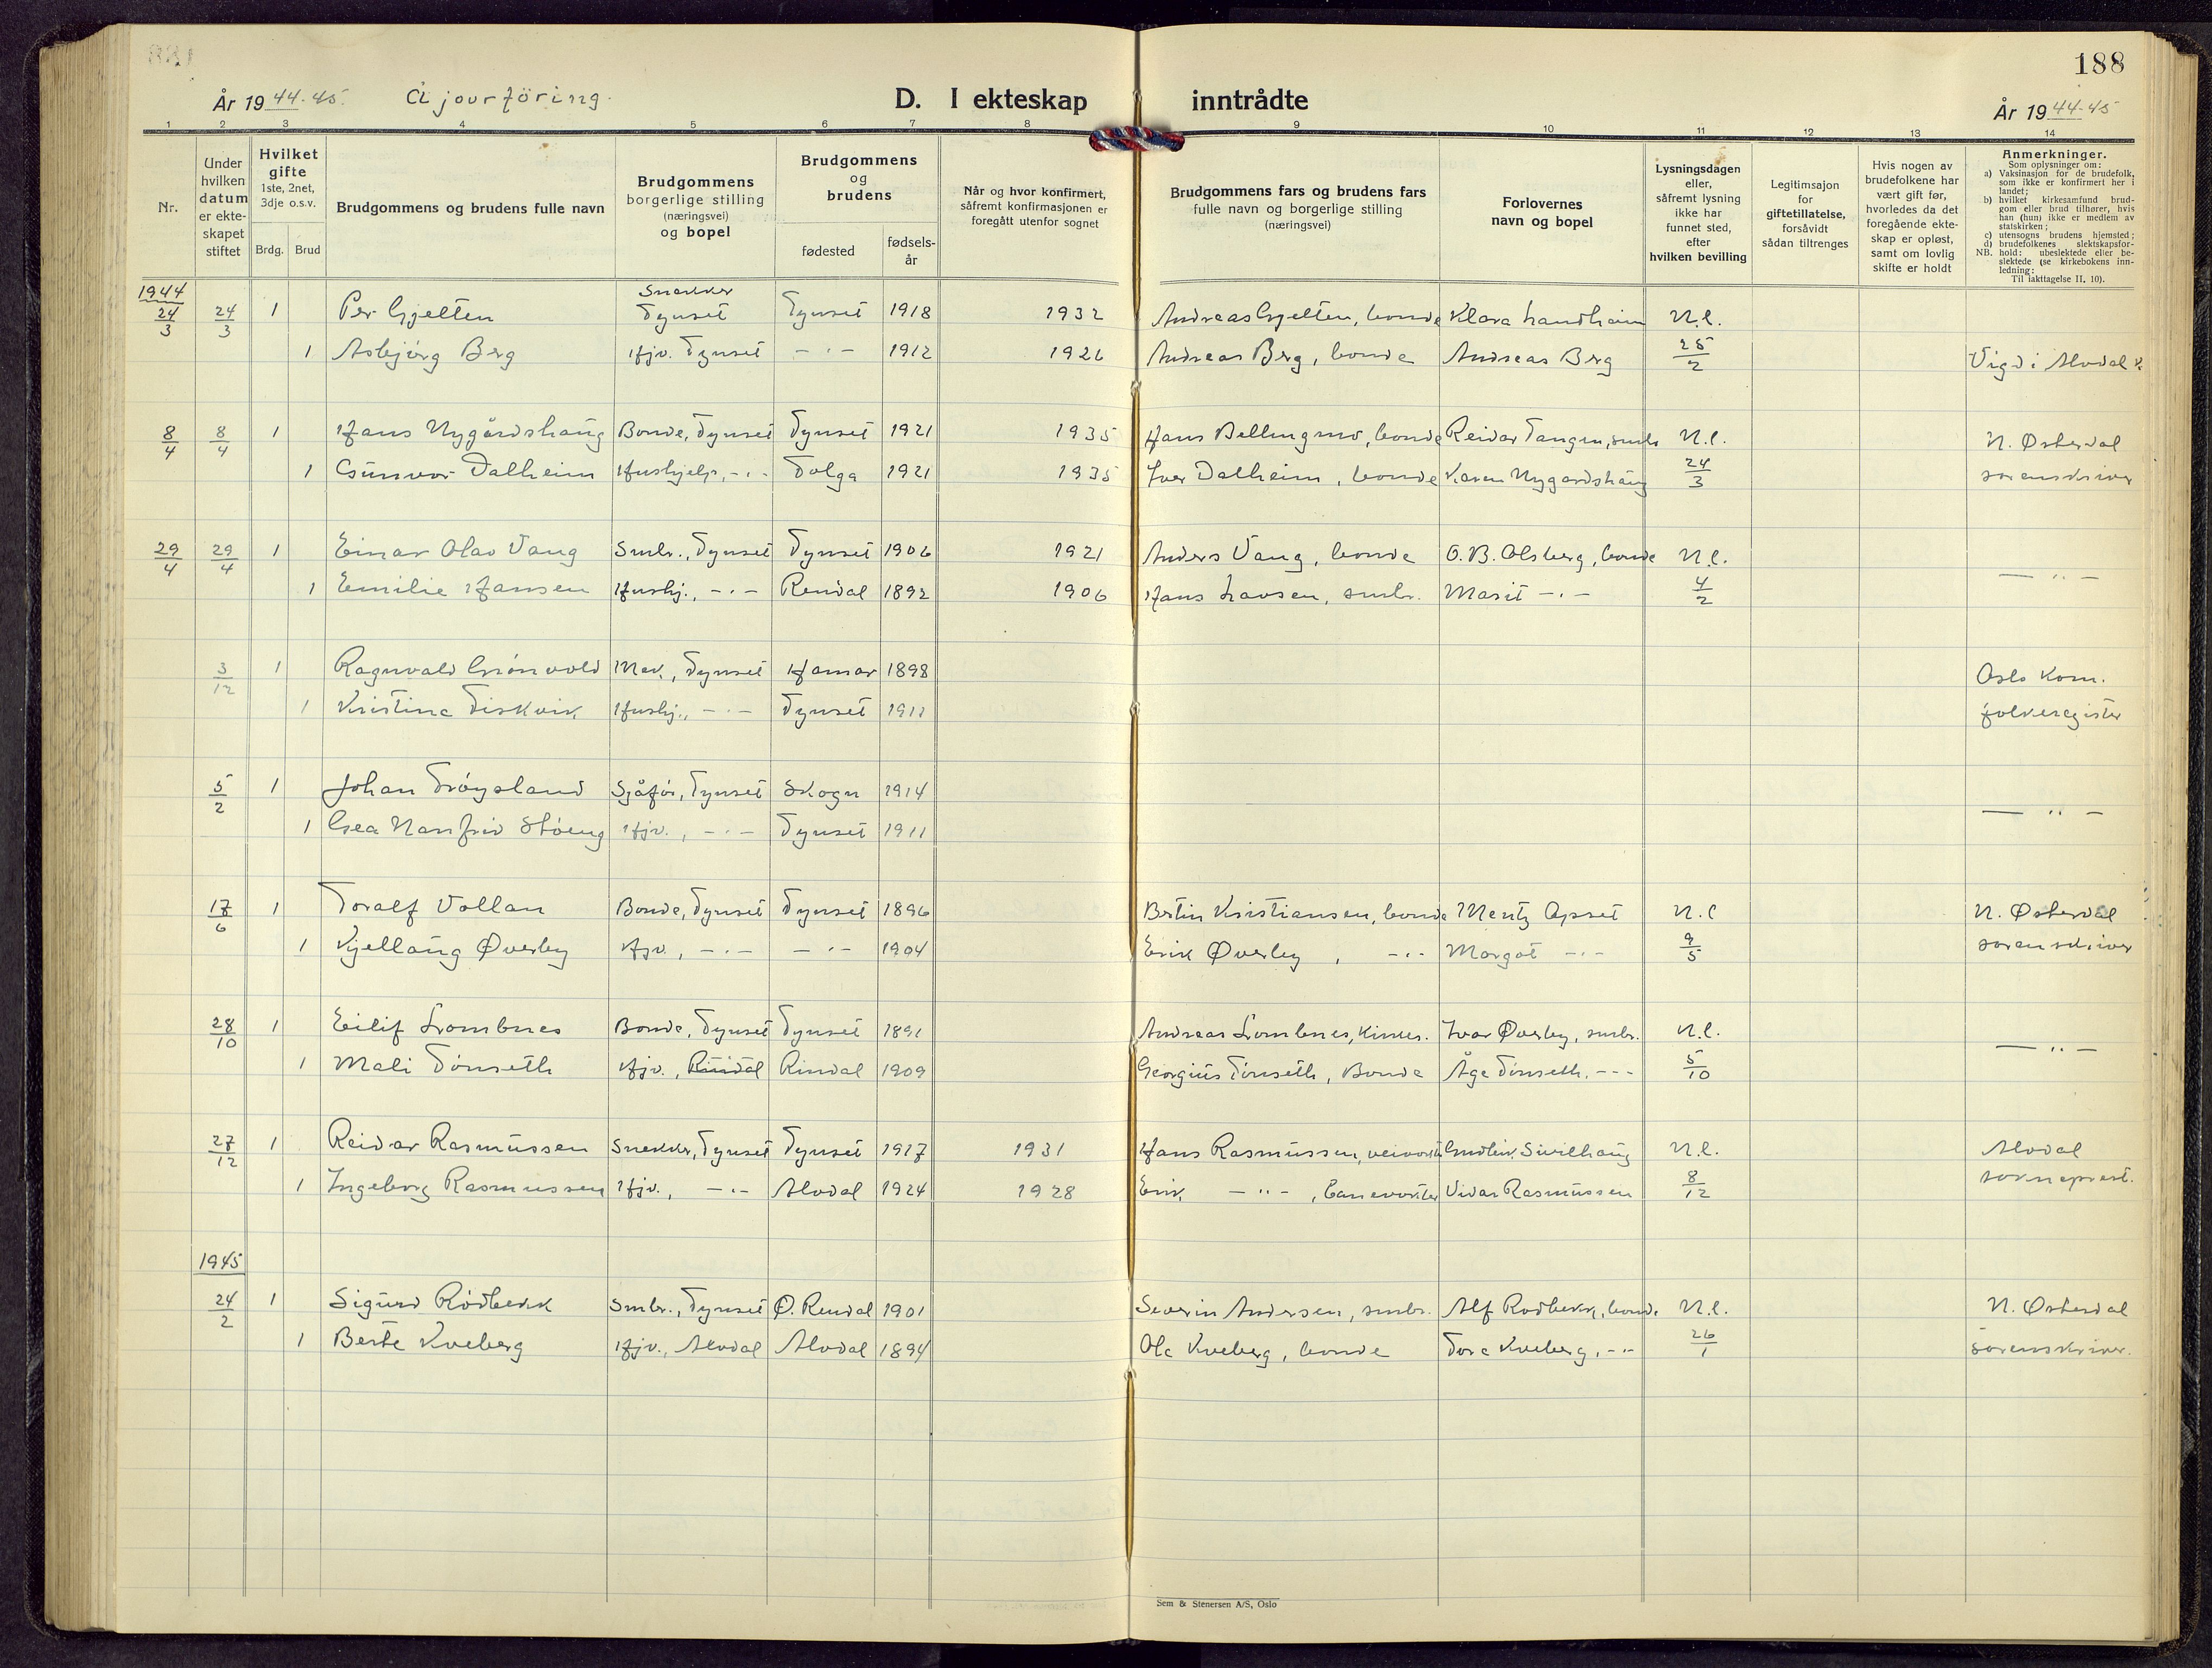 188
År 1944-45. Ajourföring.
D. I ekteskap inntrådte
År 1944-45
1 2 3 4 5 6 7 8 9 10 11 12 13 14
Nr.
Under hvilken datum er ekteskapet stiftet
Hvilket gifte
1ste, 2net, 3dje o.s.v.
Brdg. Brud
Brudgommens og brudens fulle navn
Brudgommens borgerlige stilling (næringsvei) og bopel
Brudgommens og brudens
fødested
fødsels-år
Når og hvor konfirmert, såfremt konfirmasjonen er foregått utenfor sognet
Brudgommens fars og brudens fars fulle navn og borgerlige stilling (næringsvei)
Forlovernes navn og bopel
Lysningsdagen eller, såfremt lysning ikke har funnet sted, efter hvilken bevilling
Legitimsajon for giftetillatelse, forsåvidt sådan tiltrenges
Hvis nogen av brudefolkene har vært gift før, hvorledes da det foregående ekteskap er opløst, samt om lovlig skifte er holdt
Anmerkninger.
Som oplysninger om:
a) Vaksinasjon for de brudefolk, som ikke er konfirmert her i landet;
b) hvilket kirkesamfund brudgom eller brud tilhører, hvis han (hun) ikke er medlem av statskirken;
c) utensogns brudens hjemsted;
d) brudefolkenes slektskapsforhold: ubeslektede eller beslektede (se kirkebokens innledning:
NB.
Til iakttagelse II. 10).
1944
Snekker
24/3 24/3 1 Per Gjelten Tynset Tynset 1918 1932 Andreas Gjelten, bonde Klara Landheim N.l.
1 Asbjörg Berg Hjv. Tynset -"- 1912 1926 Andreas Berg, bonde Andreas Berg 25/2 Vigd i Alvdal k.
8/4 8/4 1 Hans Nygårdshaug Bonde, Tynset Tynset 1921 1935 Hans Bellingmo, bonde Reidar Tangen, smbr N.l. N. Østerdal
1 Gunvor Dalheim Hushjelp, -"- Tolga 1921 1935 Iver Dalheim, bonde Karen Nygardshaug 24/3 sorenskriver
29/4 29/4 1 Einar Olav Vang Smbr., Tynset Tynset 1906 1921 Anders Vang, bonde O.B. Olsberg, bonde N.l. -"-
1 Emilie Hansen Hushj., -"- Rendal 1892 1906 Hans Larsen, smbr. Marit -"- 4/2
3/12 1 Ragnvald Grönvold Mek., Tynset Hamar 1898 Oslo Kom.
1 Kristine Tiskvik Hushj., -"- Tynset 1911 folkeregister
5/2 1 Johan Tröysland Sjåför, Tynset Skogn 1914 -"-
1 Gea Nanfrid Stöeng Hjv., -"- Tynset 1911
17/6 1 Toralf Vollan Bonde, Tynset Tynset 1896 Bertin Kristiansen, bonde Mentz Opset N.l N. Østerdal
1 Kjellaug Øverby Hjv., -"- -"- 1904 Erik Øverby, -"- Margot -"- 9/5 sorenskriver
28/10 1 Eilif Lombnes Bonde, Tynset Tynset 1891 Andreas Lombnes, Ivar Øverby, smbr. N.l. -"-
1 Mali Tönseth Hjv., Rindal Rindal 1909 Georgius Tönseth, Bonde Åge Tönseth, -"- 5/10
27/12 1 Reidar Rasmussen Snekker, Tynset Tynset 1917 1931 Hans Rasmussen, veivokter Sivilhaug N.l. Alvdal
1 Ingeborg Rasmussen Hjv., -"- Alvdal 1924 1928 Erik -"-, banevokter Vidar Rasmussen 8/12 sokneprest.
1945
24/2 1 Sigurd Rödbekk Smbr., Tynset Ø. Rendal 1901 Severin Andersen, smbr. Alf Rodbekk, bonde N.l. N. Østerdal
1 Berte Kveberg Hjv., Alvdal Alvdal 1894 Ola Kveberg, bonde Tora Kveberg, -"- 26/1 sorenskriver.
Sem & Stenersen A/S, Oslo